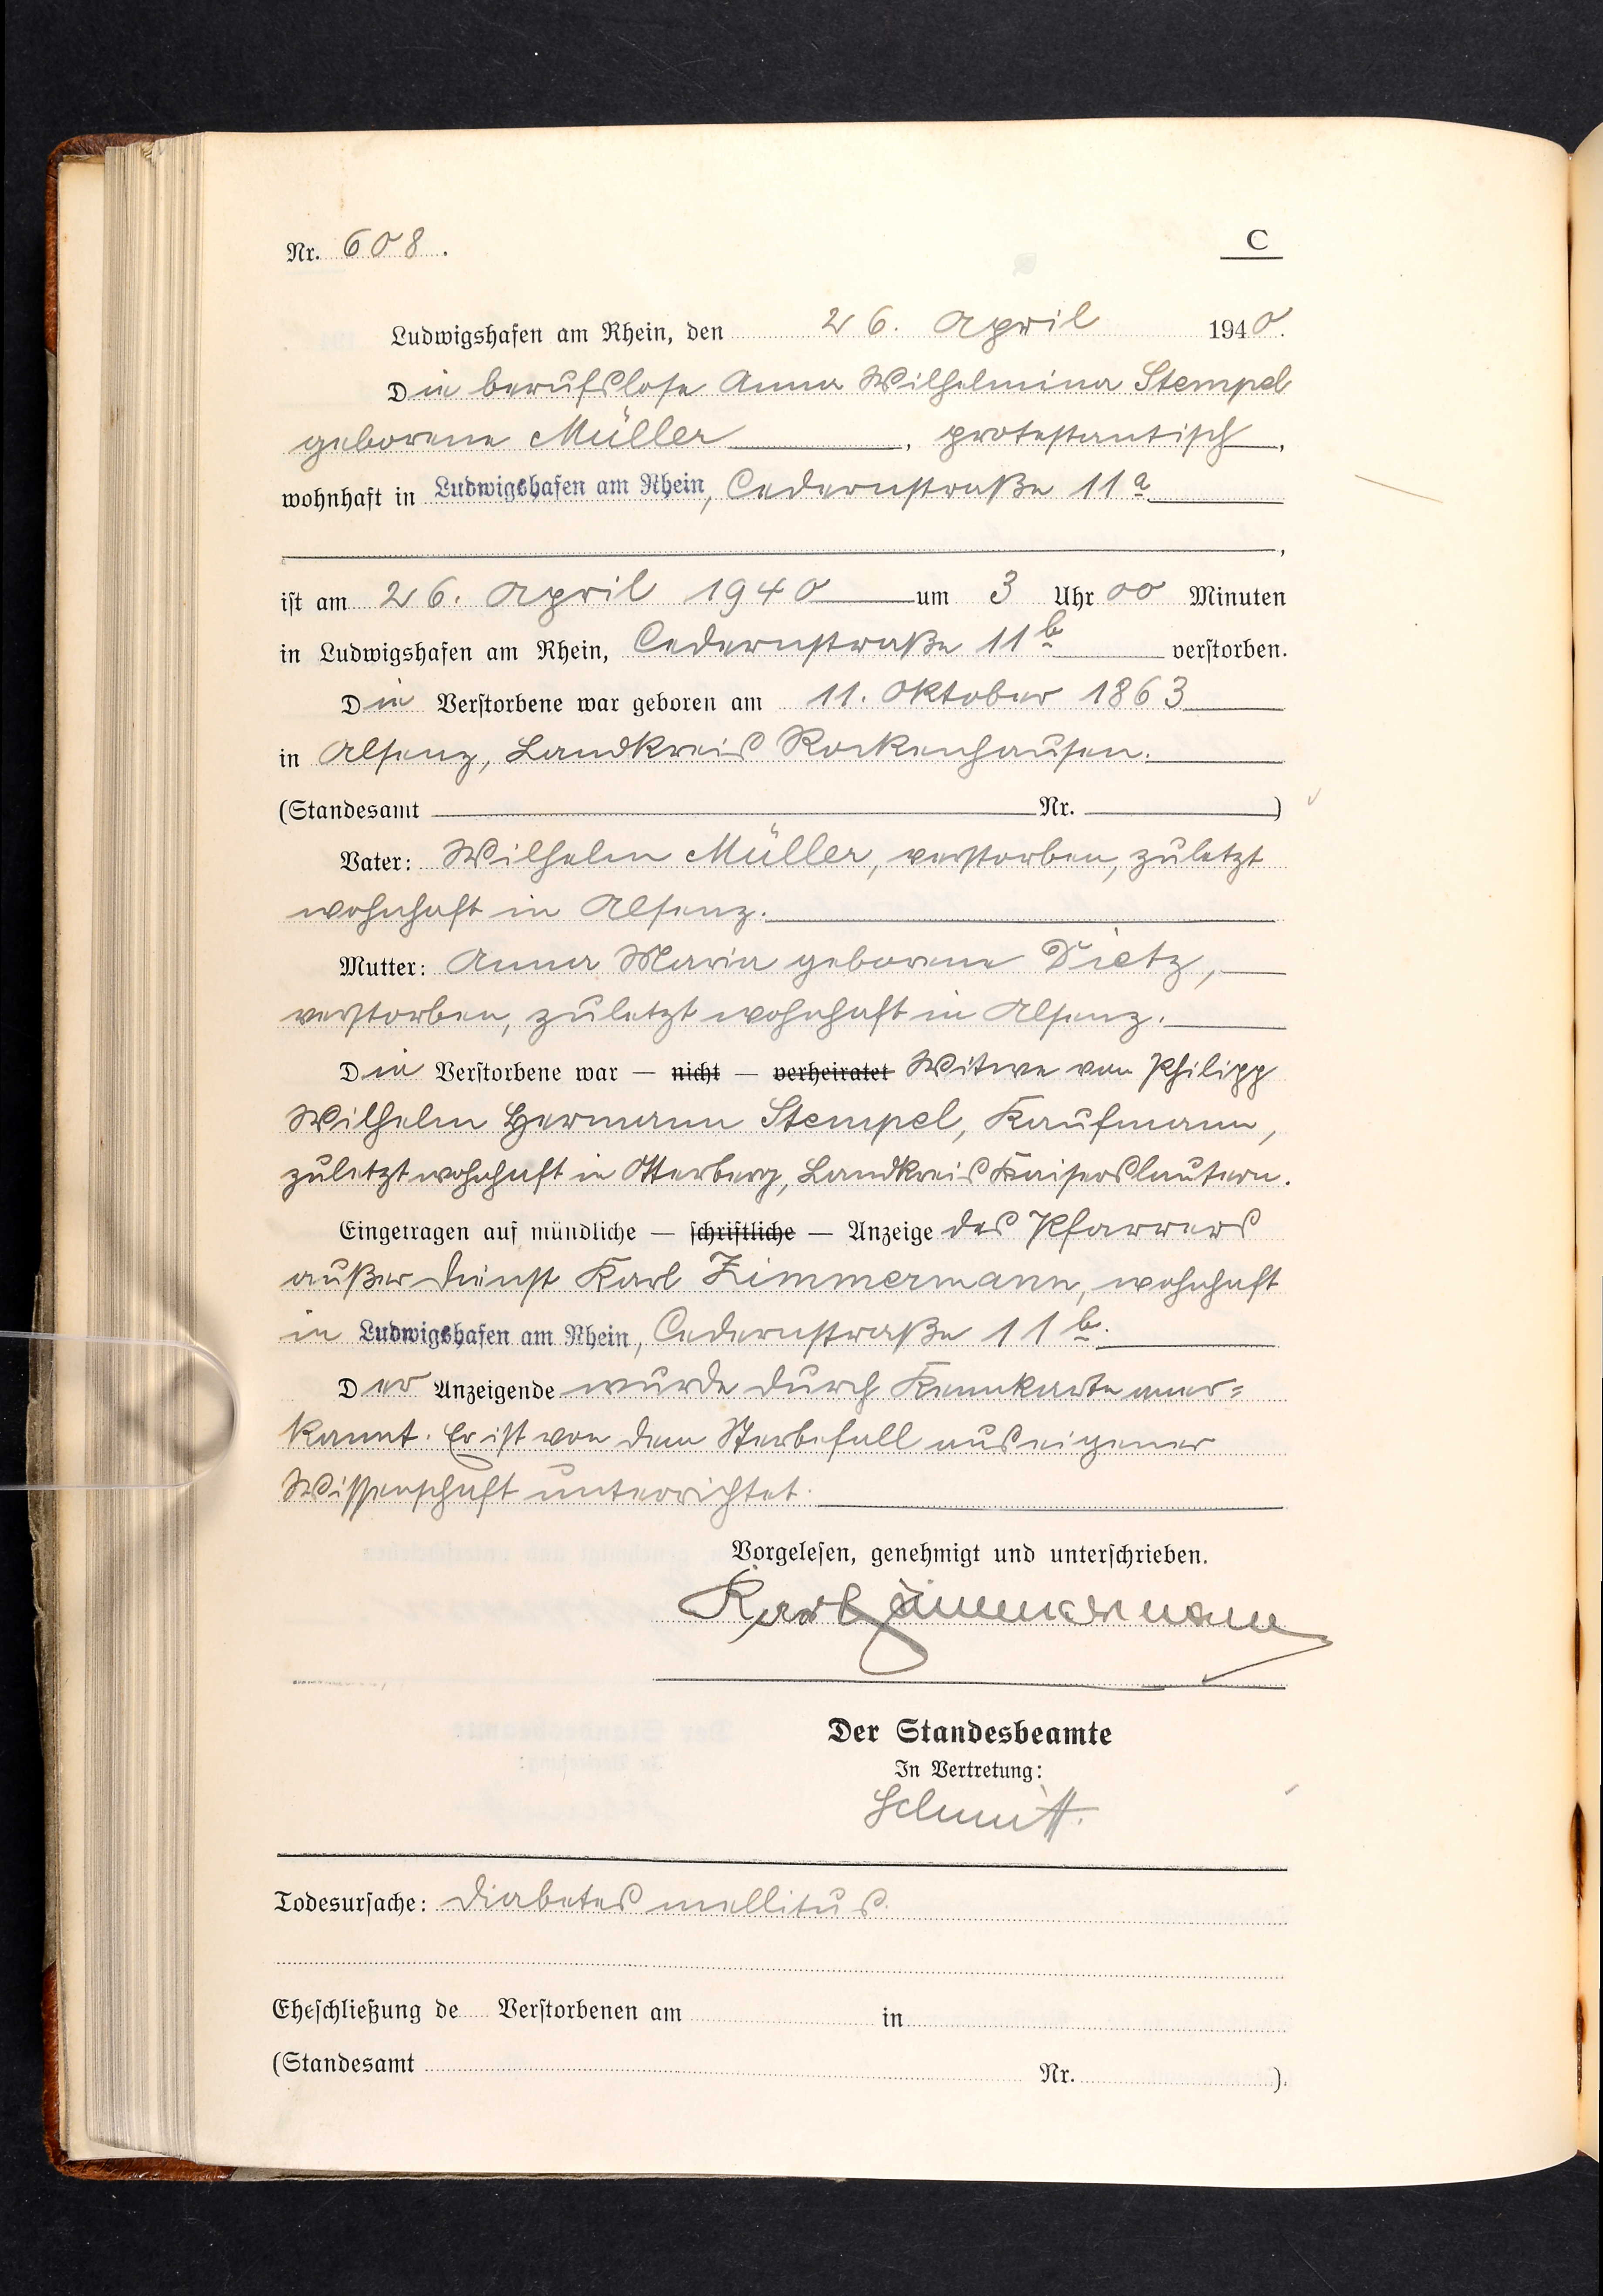 Nr. 608.
C
Ludwigshafen am Rhein, den 26. April 1940.
Die berufslose Anna Wilhelmina Stempel
geborene Müller, protestantisch,
wohnhaft in Ludwigshafen am Rhein, Cedernstraße 11a
,
ist am 26. April 1940 um 3 Uhr 00 Minuten
in Ludwigshafen am Rhein, Cedernstraße 11b verstorben.
Die Verstorbene war geboren am 11. Oktober 1863
in Alsenz, Landkreis Rockenhausen.
(Standesamt Nr. )
Vater: Wilhelm Müller, verstorben, zuletzt
wohnhaft in Alsenz.
Mutter: Anna Maria geborene Dietz,
verstorben, zuletzt wohnhaft in Alsenz.
Die Verstorbene war — nicht — verheiratet Witwe von Philipp
Wilhelm Hermann Stempel, Kaufmann,
zuletzt wohnhaft in Otterberg, Landkreis Kaiserslautern.
Eingetragen auf mündliche — schriftliche — Anzeige des Pfarrers
außer Dienst Karl Zimmermann, wohnhaft
in Ludwigshafen am Rhein, Cedernstraße 11b.
Der Anzeigende wurde durch Kennkarte aner=
kannt. Er ist von dem Sterbefall aus eigener
Wissenschaft unterrichtet.
Vorgelesen, genehmigt und unterschrieben.
Karl Zimmermann
Der Standesbeamte
In Vertretung:
Schmitt.
Todesursache: Diabetes mellitus.
Eheschließung de Verstorbenen am in
(Standesamt Nr. ).